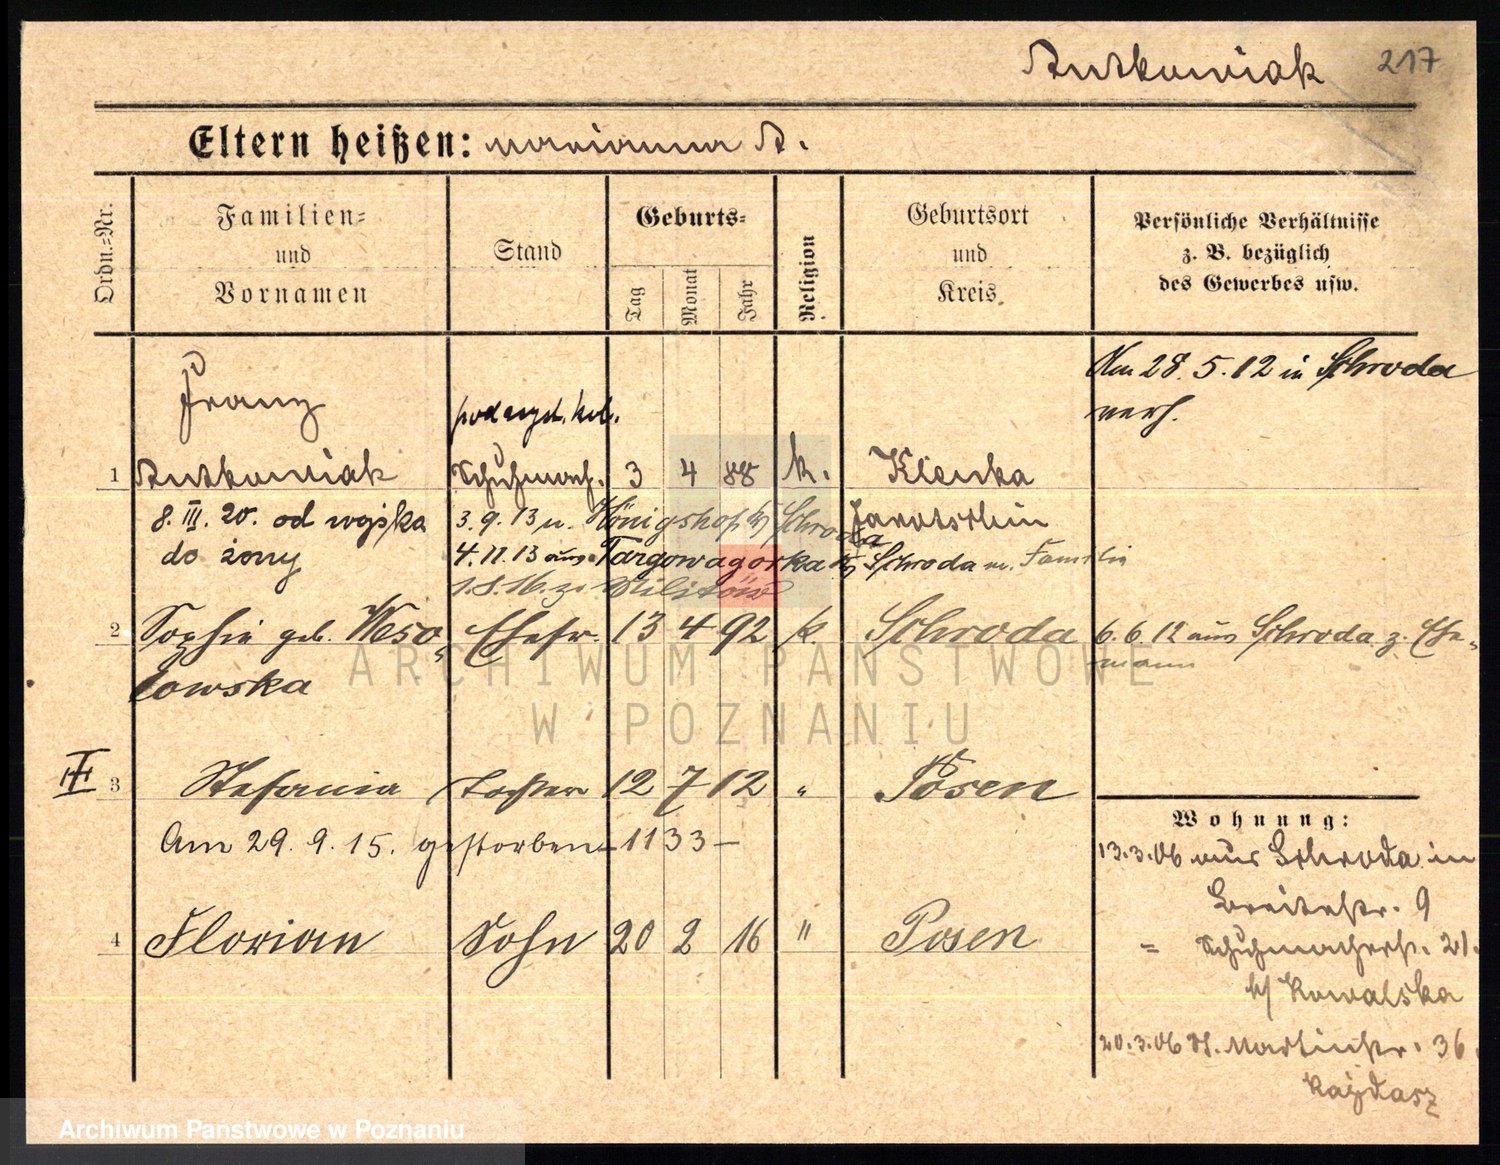 Rutkowiak 217
Eltern heißen: Marianna R.
Ordn.=Nr.
Familien=
und
Vornamen
Stand
Geburts=
Tag
Monat
Jahr
Religion
Geburtsort
und
Kreis.
Persönliche Verhältnisse
z. B. bezüglich
des Gewerbes usw.
Am 28. 5. 12 in Schroda
verh.
Franz
1 Rutkowiak Schuhmach. 3 4 88 k. Klenka
8. III. 20. od wojska 3.9.13 n. Königshof b/ Schroda Jarotschin
do żony 4.11.13 aus Targowagórka b/ Schroda m. Familie
1.8.16. z. Militär
2 Sophie geb. Weso= Ehefr. 13 4 92 k. Schroda 6. 6. 12 aus Schroda z. Ehe=
mann
łowska
3 Stefania Tochter 12 7 12 " Posen
Am 29. 9. 15. gestorben - 1133 -
Wohnung:
13.3.06 aus Schroda in
Breitestr. 9
4 Florian Sohn 20 2 16 " Posen
= Schuhmacherstr. 21.
b/ Kowalska
20.3.06 St. Martinstr. 36
Kajdasz
ARCHIWUM PAŃSTWOWE
W POZNANIU
Archiwum Państwowe w Poznaniu